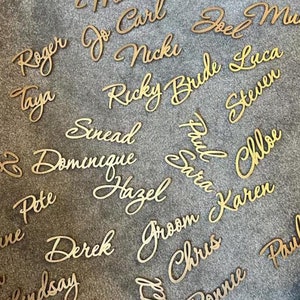 Carl
Jo
Joel
Nicki
Roger
Luca
Ricky
Bride
Steven
Taya
Sinead
Paul
Chloe
Dominique
Sara
Hazel
Karen
Pete
Groom
Derek
Chris